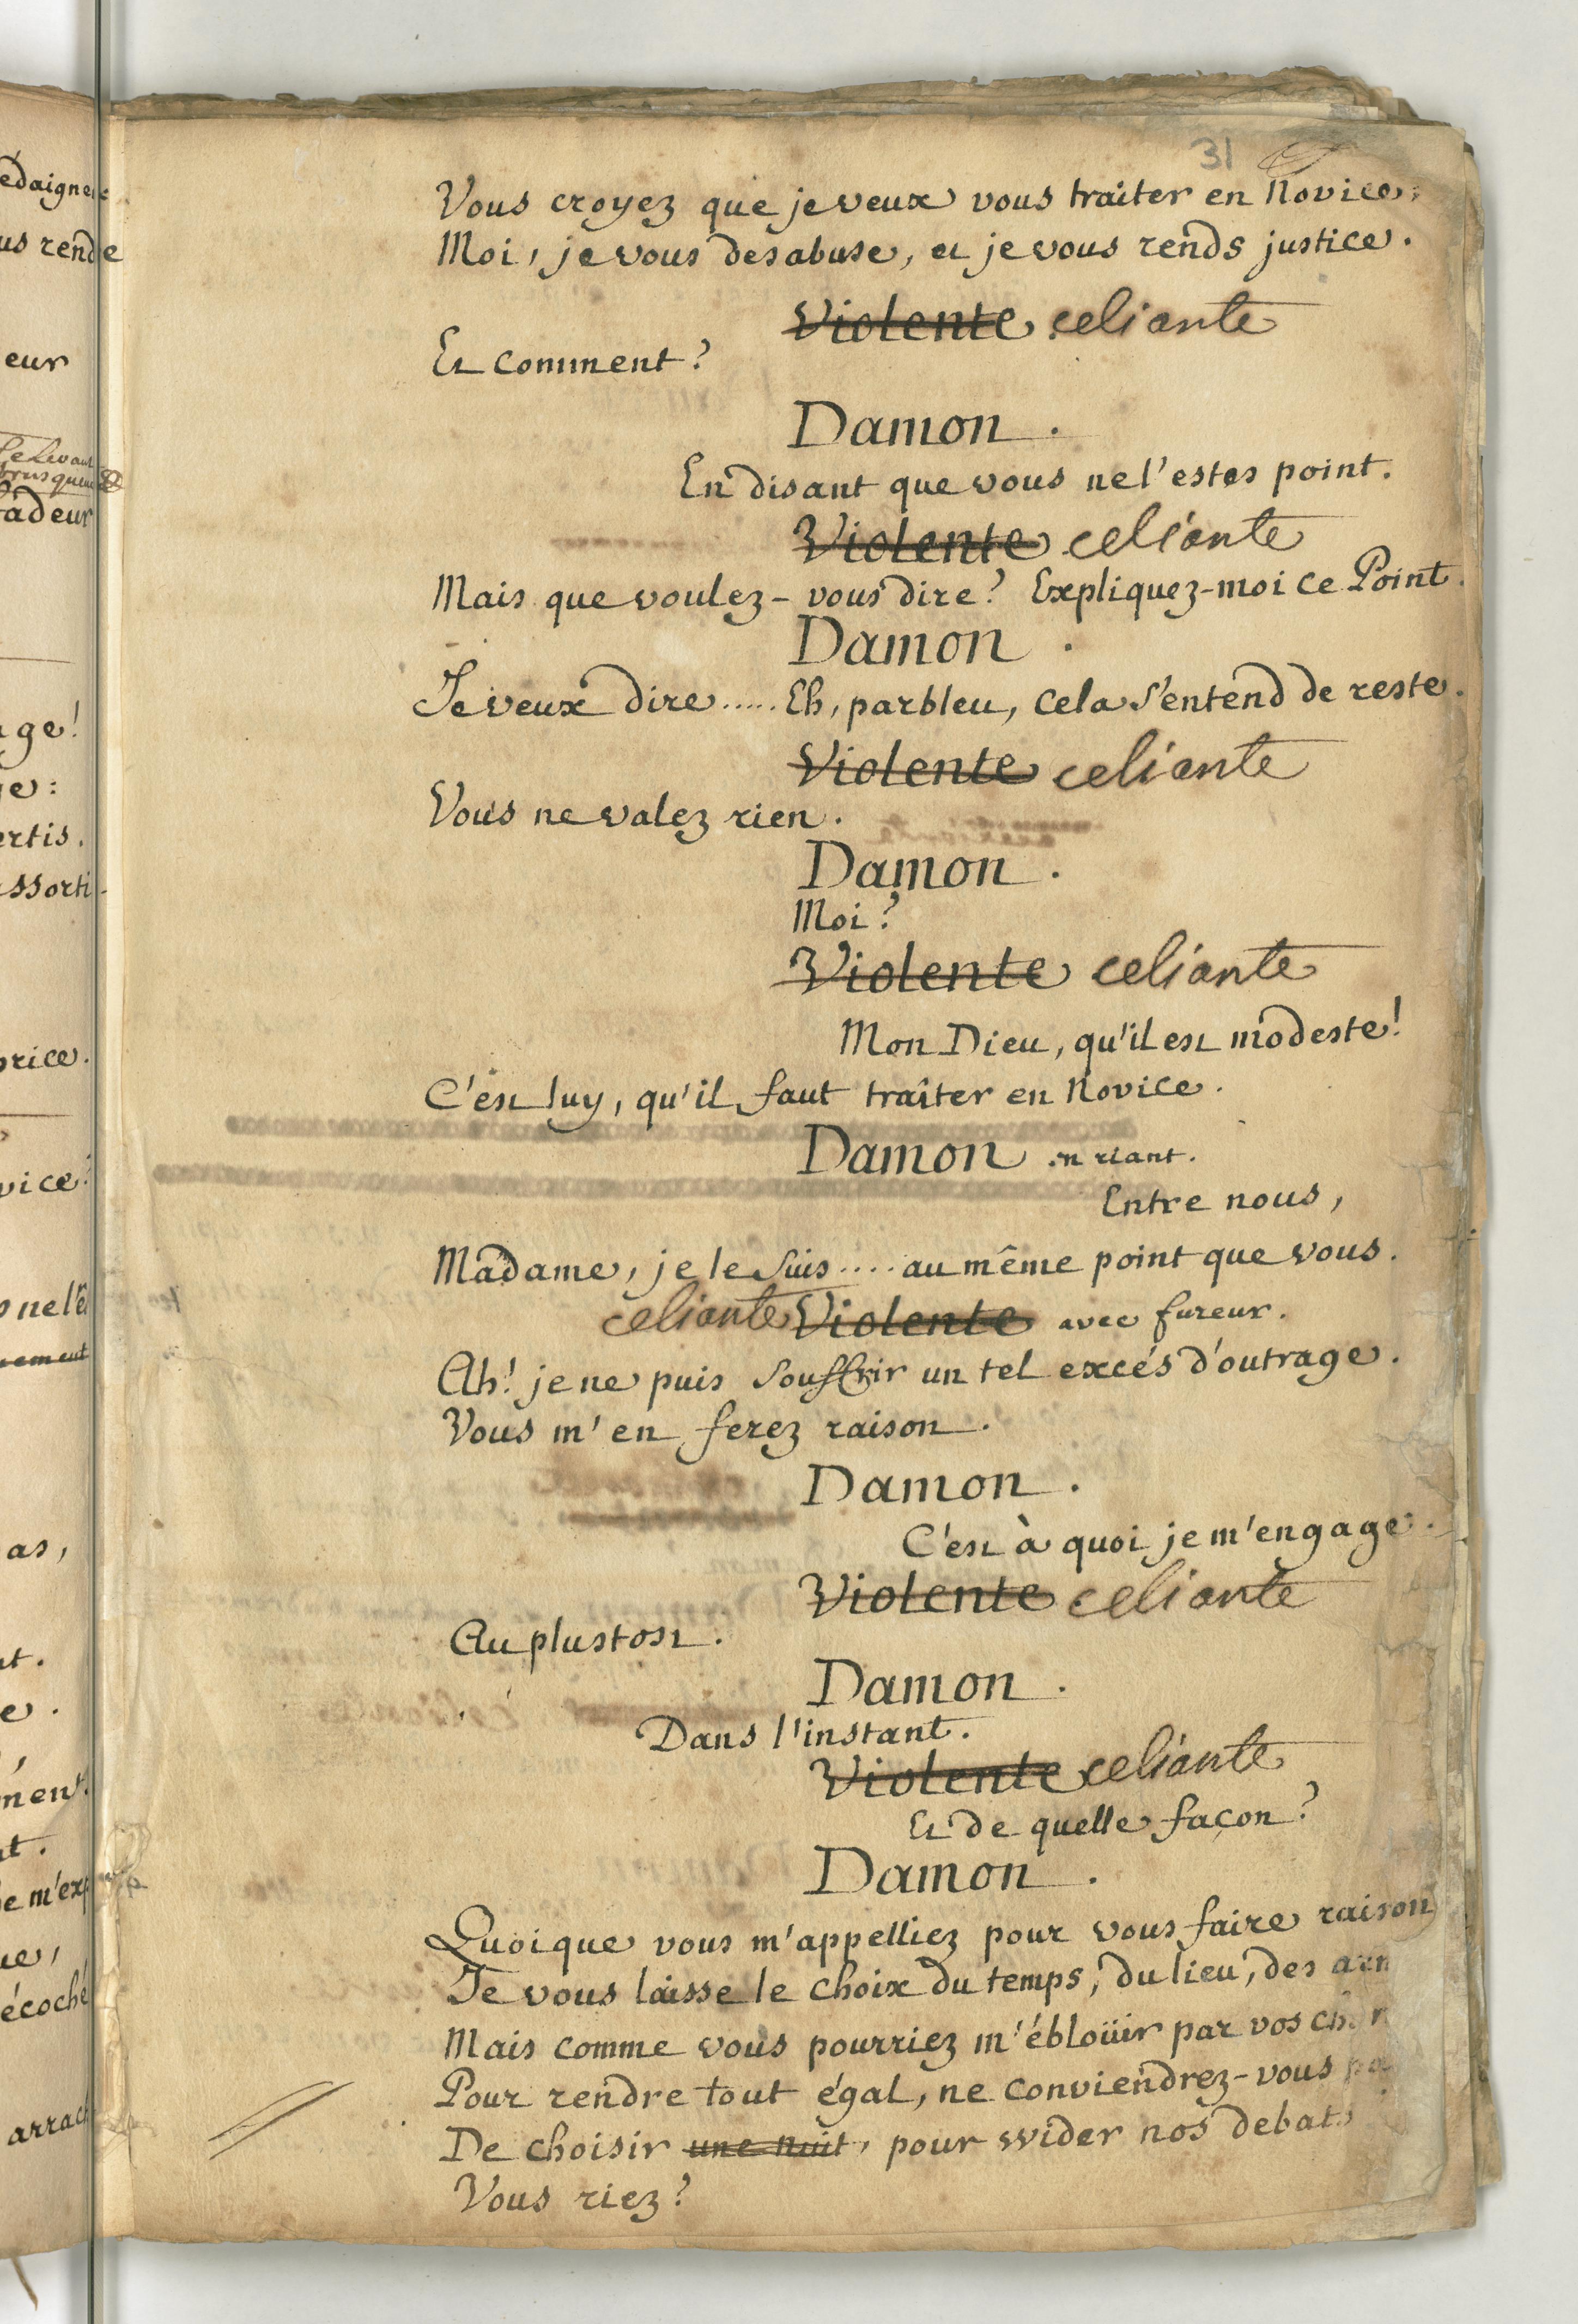 31
Vous croyez que je veux vous traiter en Novice:
Moi, je vous desabuse, et je vous rends justice.
Violente celiante
Et comment?
Damon.
En disant que vous ne l'estes point.
Violente celiante
Mais que voulez-vous dire? Expliquez-moi ce Point.
Damon.
Je veux dire..... Eh, parbleu, cela s'entend de reste.
Violente celiante
Vous ne valez rien.
Damon.
Moi?
Violente celiante
Mon Dieu, qu'il est modeste!
C'est luy, qu'il faut traîter en Novice.
Damon en riant.
Entre nous,
Madame, je le suis.... au même point que vous.
celiante Violente avec fureur.
Ah! je ne puis souffrir un tel excés d'outrage.
Vous m'en ferez raison.
Damon.
C'est à quoi je m'engage.
Violente celiante
Au plustost.
Damon.
Dans l'instant.
Violente celiante
Et de quelle façon?
Damon.
Quoique vous m'appelliez pour vous faire raison
Je vous laisse le choix du temps, du lieu, des
Mais comme vous pourriez m'ébloüir par vos
Pour rendre tout égal, ne conviendrez-vous
De choisir une nuit, pour wider nos debats
Vous riez?